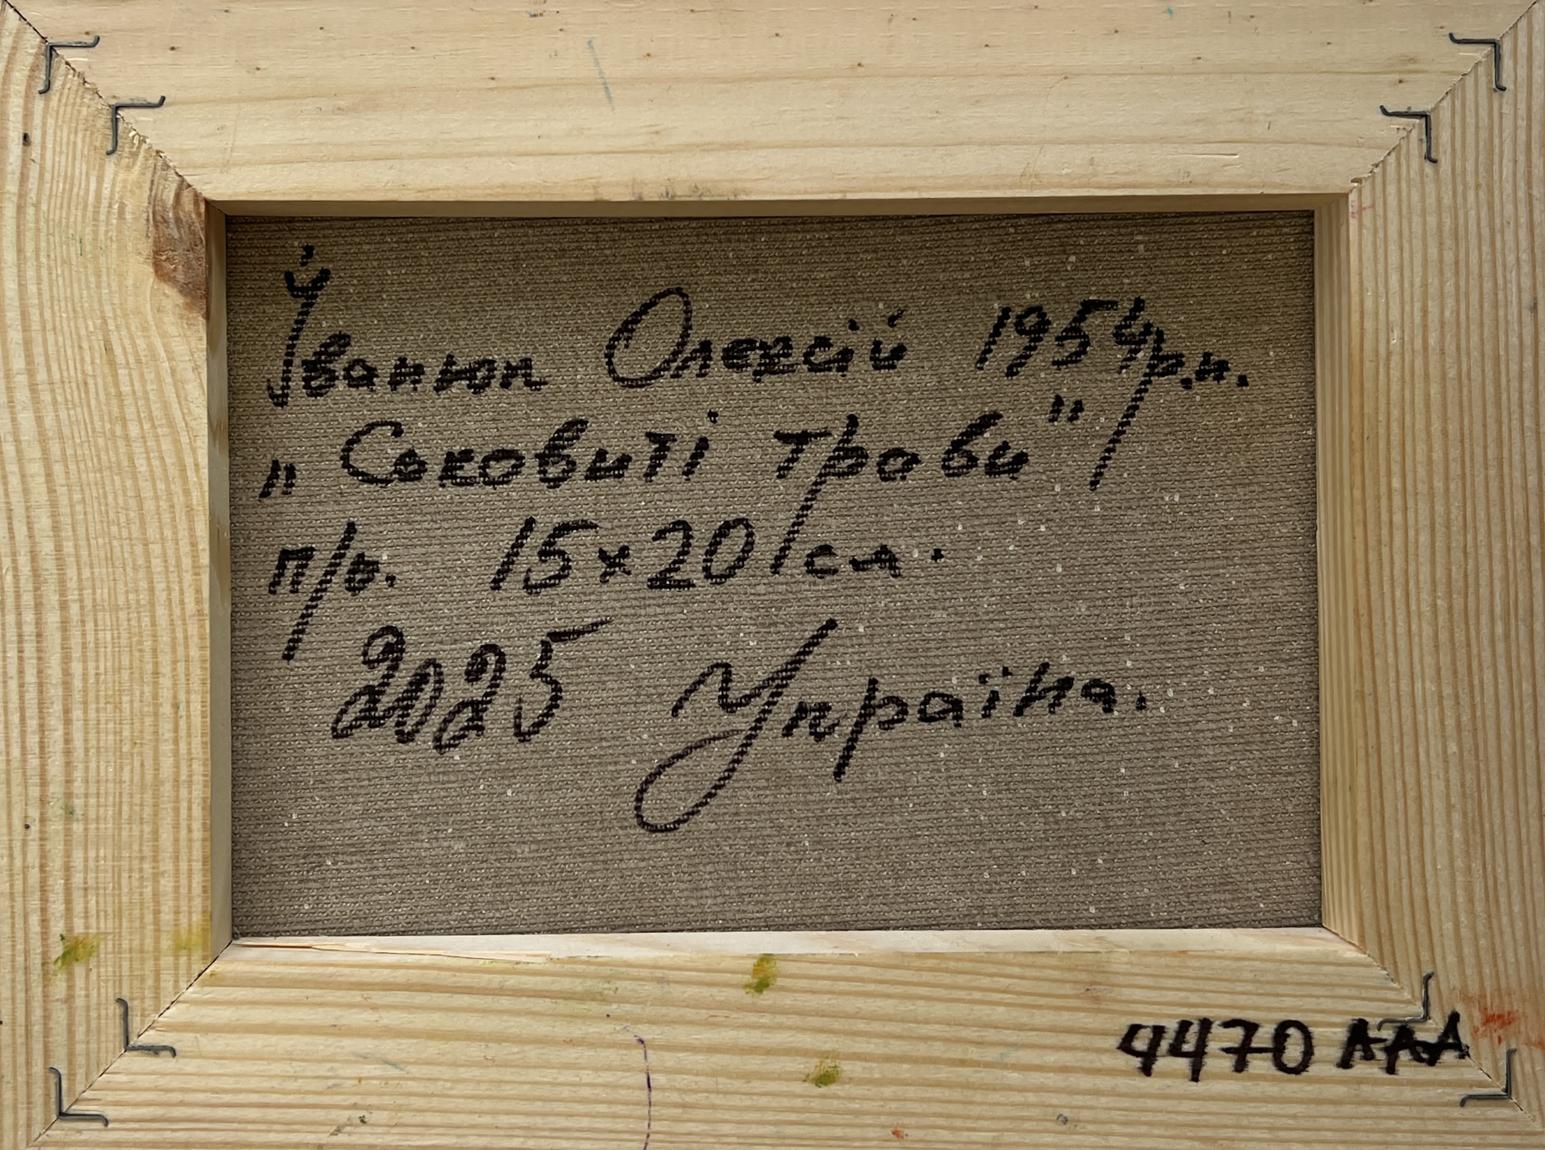 Іванюк Олексій 1954р.н.
„Соковиті трави"
п/о. 15х20 см.
2025 Україна.
4470 ААА